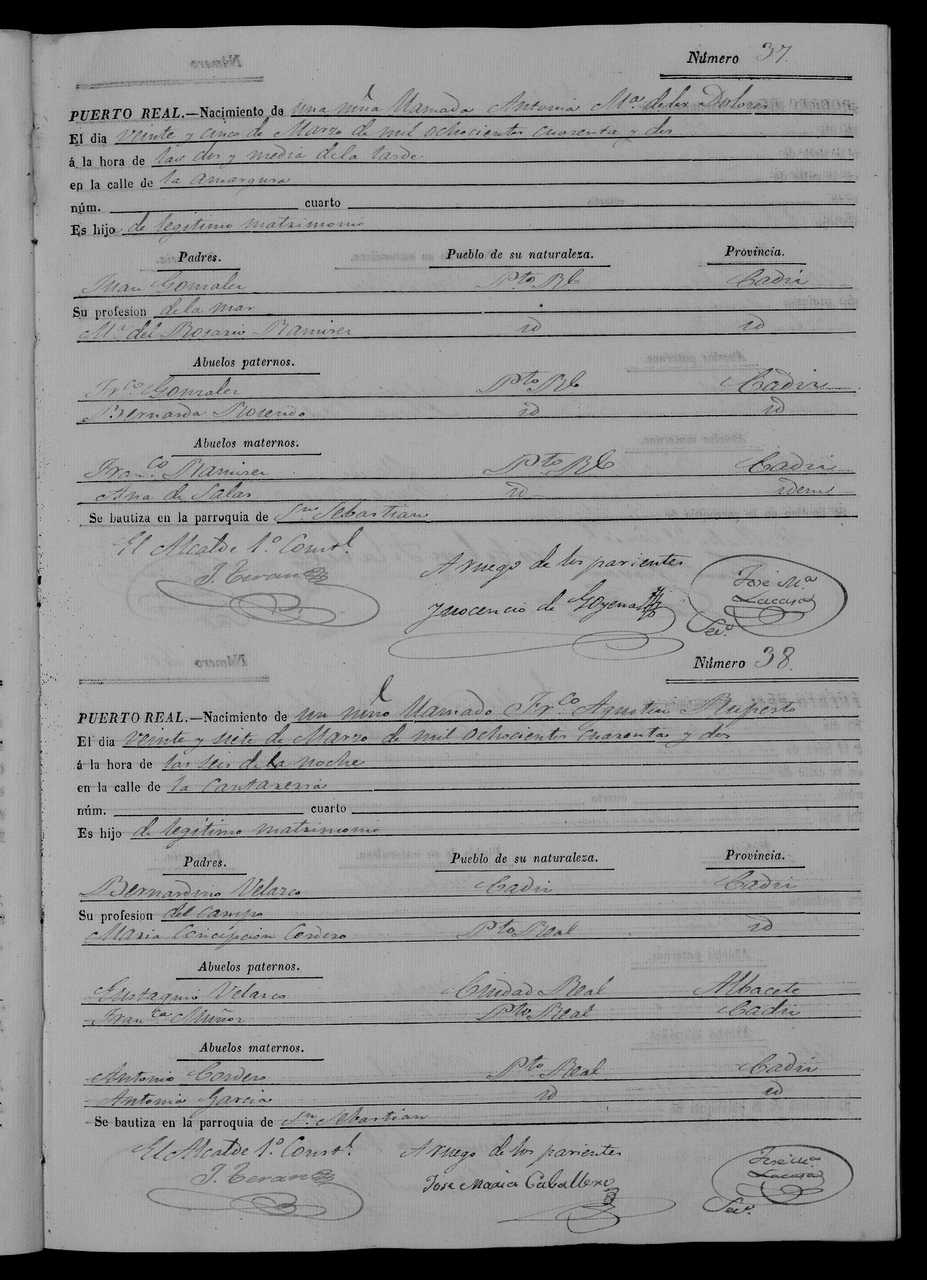 Número 37.
PUERTO REAL.—Nacimiento de una niña llamada Antonia Mª. de los Dolores
El dia veinte y cinco de Marzo de mil ochocientos cuarenta y dos
á la hora de las dos y media de la tarde
en la calle de la Amargura
núm. cuarto
Es hijo de legitimo matrimonio
Padres. Pueblo de su naturaleza. Provincia.
Juan Gonzalez Pto. Rl Cadiz
Su profesion de la mar
Mª. del Rosario Ramirez id id
Abuelos paternos.
Frco. Gonzalez Pto. Rl Cadiz
Bernarda Rosendo id id
Abuelos maternos.
Franco. Ramirez Pto. Rl Cadiz
Ana de Salas id idem
Se bautiza en la parroquia de Sn. Sebastian
El Alcalde 1º. Constl.
A ruego de los parientes
J. Teran
Inocencio de Goyena
José Mª.
Lacasa
Seco.
Número 38.
PUERTO REAL.—Nacimiento de un niño llamado Frco. Agustin Ruperto
El dia veinte y siete de Marzo de mil ochocientos cuarenta y dos
á la hora de las seis de la noche
en la calle de la Cantareria
núm. cuarto
Es hijo de legítimo matrimonio
Padres. Pueblo de su naturaleza. Provincia.
Bernardino Velazco Cadiz Cadiz
Su profesion del campo
Maria Concépcion Cordero Pto. Real id
Abuelos paternos.
Eustaquio Velazco Ciudad Real Albacete
Franca. Muñoz Pto. Real Cadiz
Abuelos maternos.
Antonio Cordero Pto. Real Cadiz
Antonia Garcia id id
Se bautiza en la parroquia de Sn. Sebastian
El Alcalde 1º. Constl.
A ruego de los parientes
J. Teran
Jose Maria Caballero
José Mª.
Lacasa
Seco.